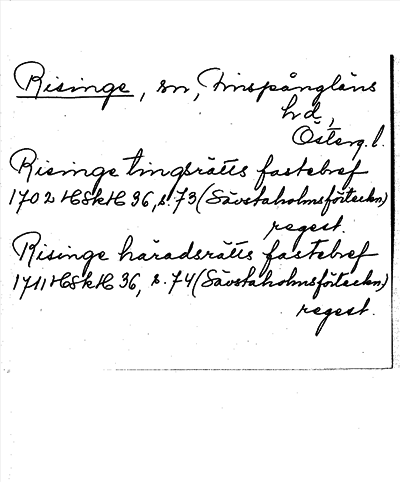 Risinge, sn, Finspånglāns
hd,
Österg. l.
Risinge tingsrätts fastebref
1702 HSkH 36, s. 73 (Sävstaholmsförteckn)
regest.
Risinge häradsrätts fastebref
1711 HSkH 36, s. 74 (Sävstaholmsförteckn)
regest.